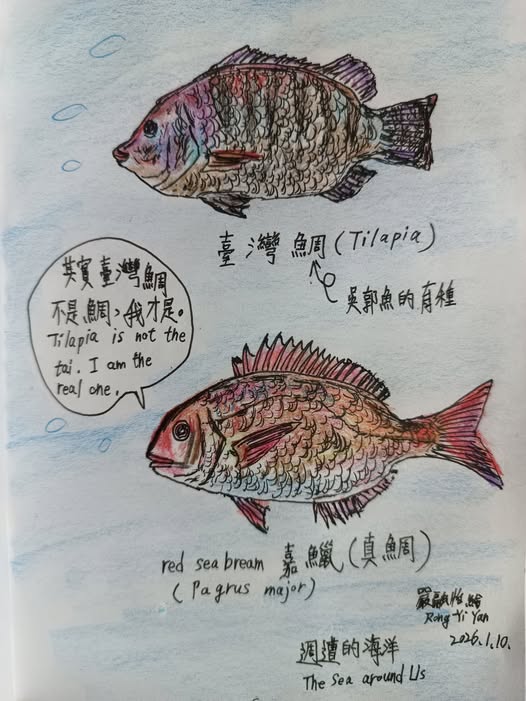 臺灣鯛(Tilapia)
吳郭魚的育種
其實臺灣鯛
不是鯛,我才是。
Tilapia is not the
tai. I am the
real one.
red seabream 嘉鱲(真鯛)
(Pagrus major)
嚴融怡繪
Rong Yi Yan
2026.1.10.
週遭的海洋
The Sea around Us